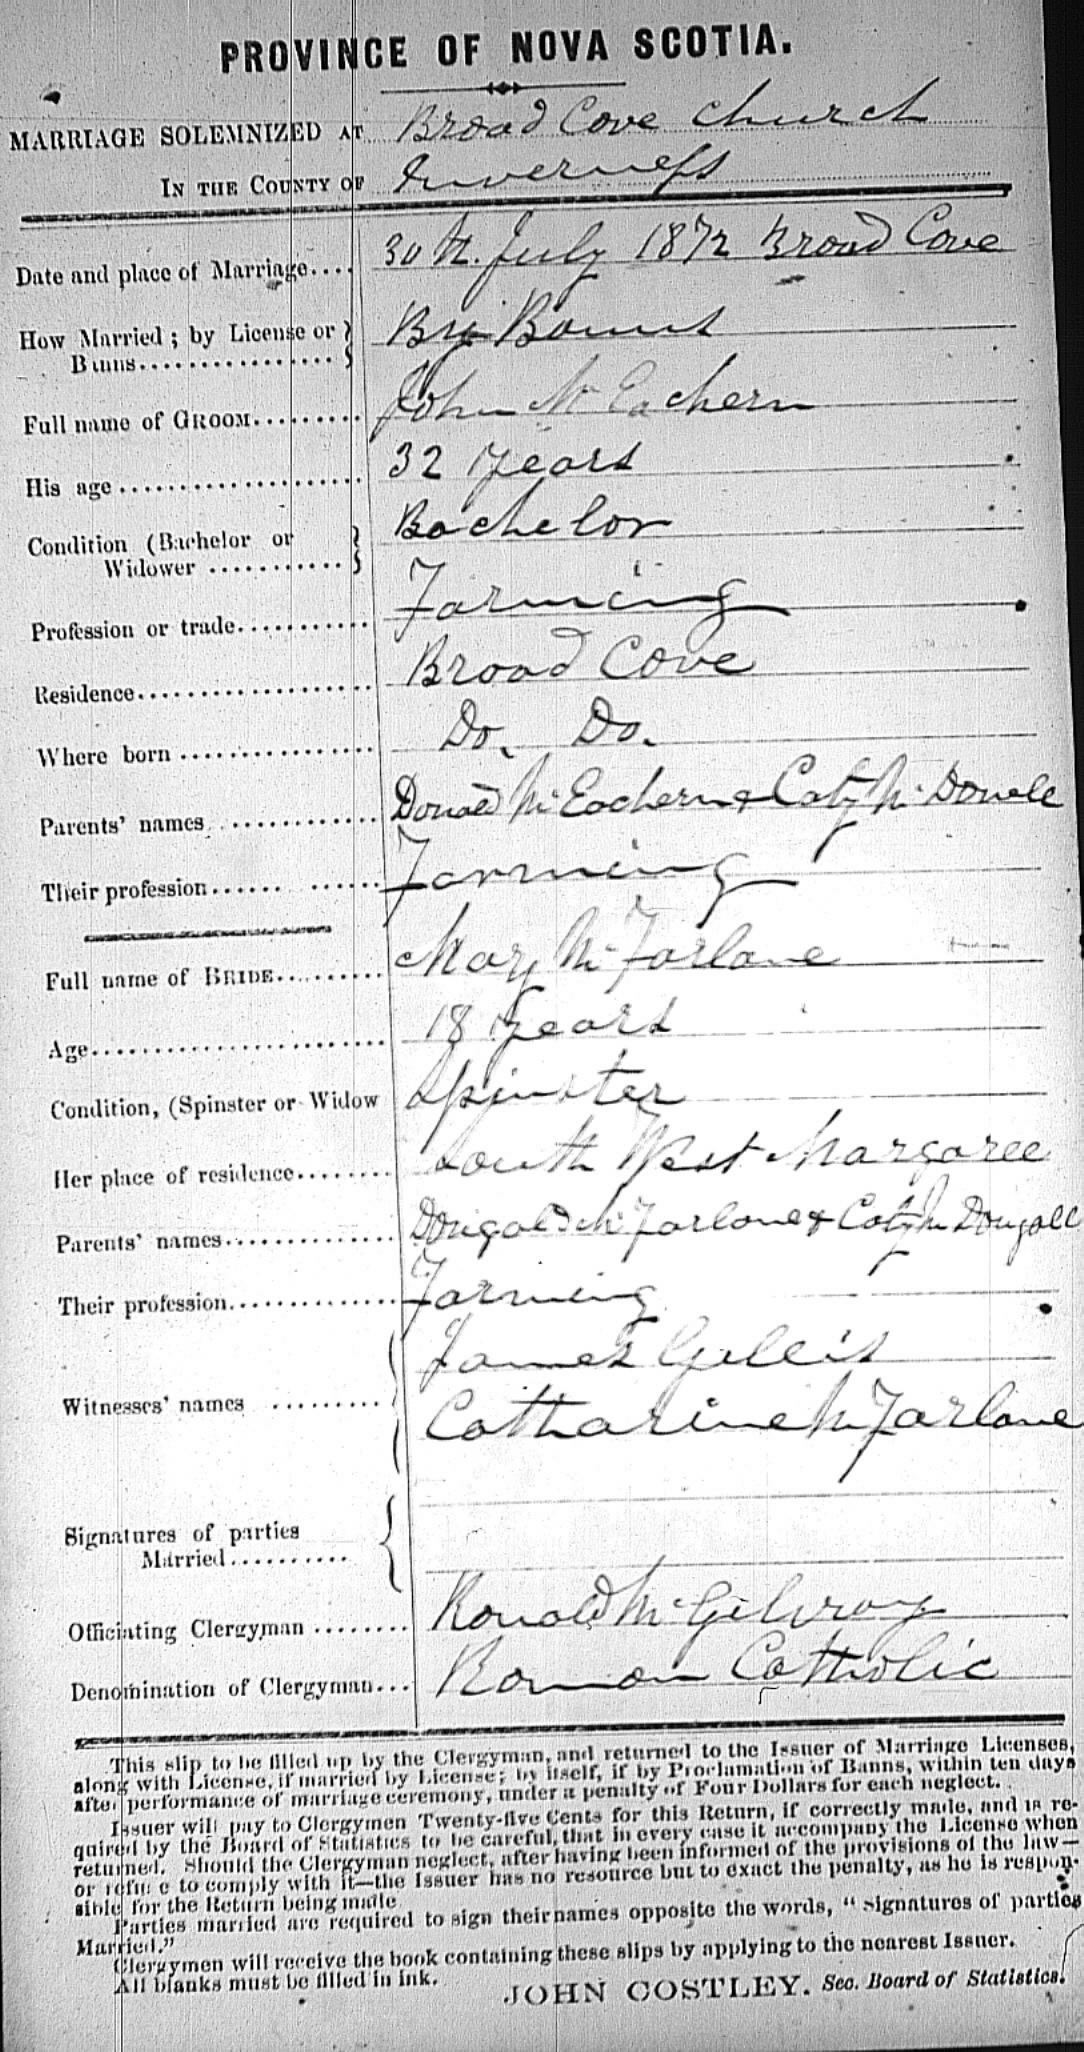 PROVINCE OF NOVA SCOTIA.
MARRIAGE SOLEMNIZED AT Broad Cove Church
IN THE COUNTY OF Inverness
Date and place of Marriage.... 30th. July 1872 Broad Cove
How Married ; by License or } By Banns
Banns.................. }
Full name of GROOM.......... John McEachern
His age ..................... 32 years
Condition (Bachelor or } Bachelor
Widower ............ }
Profession or trade............ Farming
Residence.................... Broad Cove
Where born ................ Do. Do.
Parents' names ............. Donald McEachern & Caty McDonell
Their profession...... ...... Farming
Full name of BRIDE.......... Mary McFarlane
Age......................... 18 years
Condition, (Spinster or Widow Spinster
Her place of residence........ South West Margaree
Parents' names............... Dougald McFarlane & Caty McDougall
Their profession............... Farming
James Gillis
Witnesses' names ..........
Catharine McFarlane
Signatures of parties {
Married..........
Officiating Clergyman ........ Ronald McGilvray
Denomination of Clergyman... Roman Catholic
This slip to be filled up by the Clergyman, and returned to the Issuer of Marriage Licenses,
along with License, if married by License; by itself, if by Proclamation of Banns, within ten days
after performance of marriage ceremony, under a penalty of Four Dollars for each neglect.
Issuer will pay to Clergymen Twenty-five Cents for this Return, if correctly made, and is re-
quired by the Board of Statistics to be careful, that in every case it accompany the License when
returned. Should the Clergyman neglect, after having been informed of the provisions of the law—
or refuse to comply with it—the Issuer has no resource but to exact the penalty, as he is respon-
sible for the Return being made
Parties married are required to sign their names opposite the words, "Signatures of parties
Married."
Clergymen will receive the book containing these slips by applying to the nearest Issuer.
All blanks must be filled in ink.
JOHN COSTLEY. Sec. Board of Statistics.